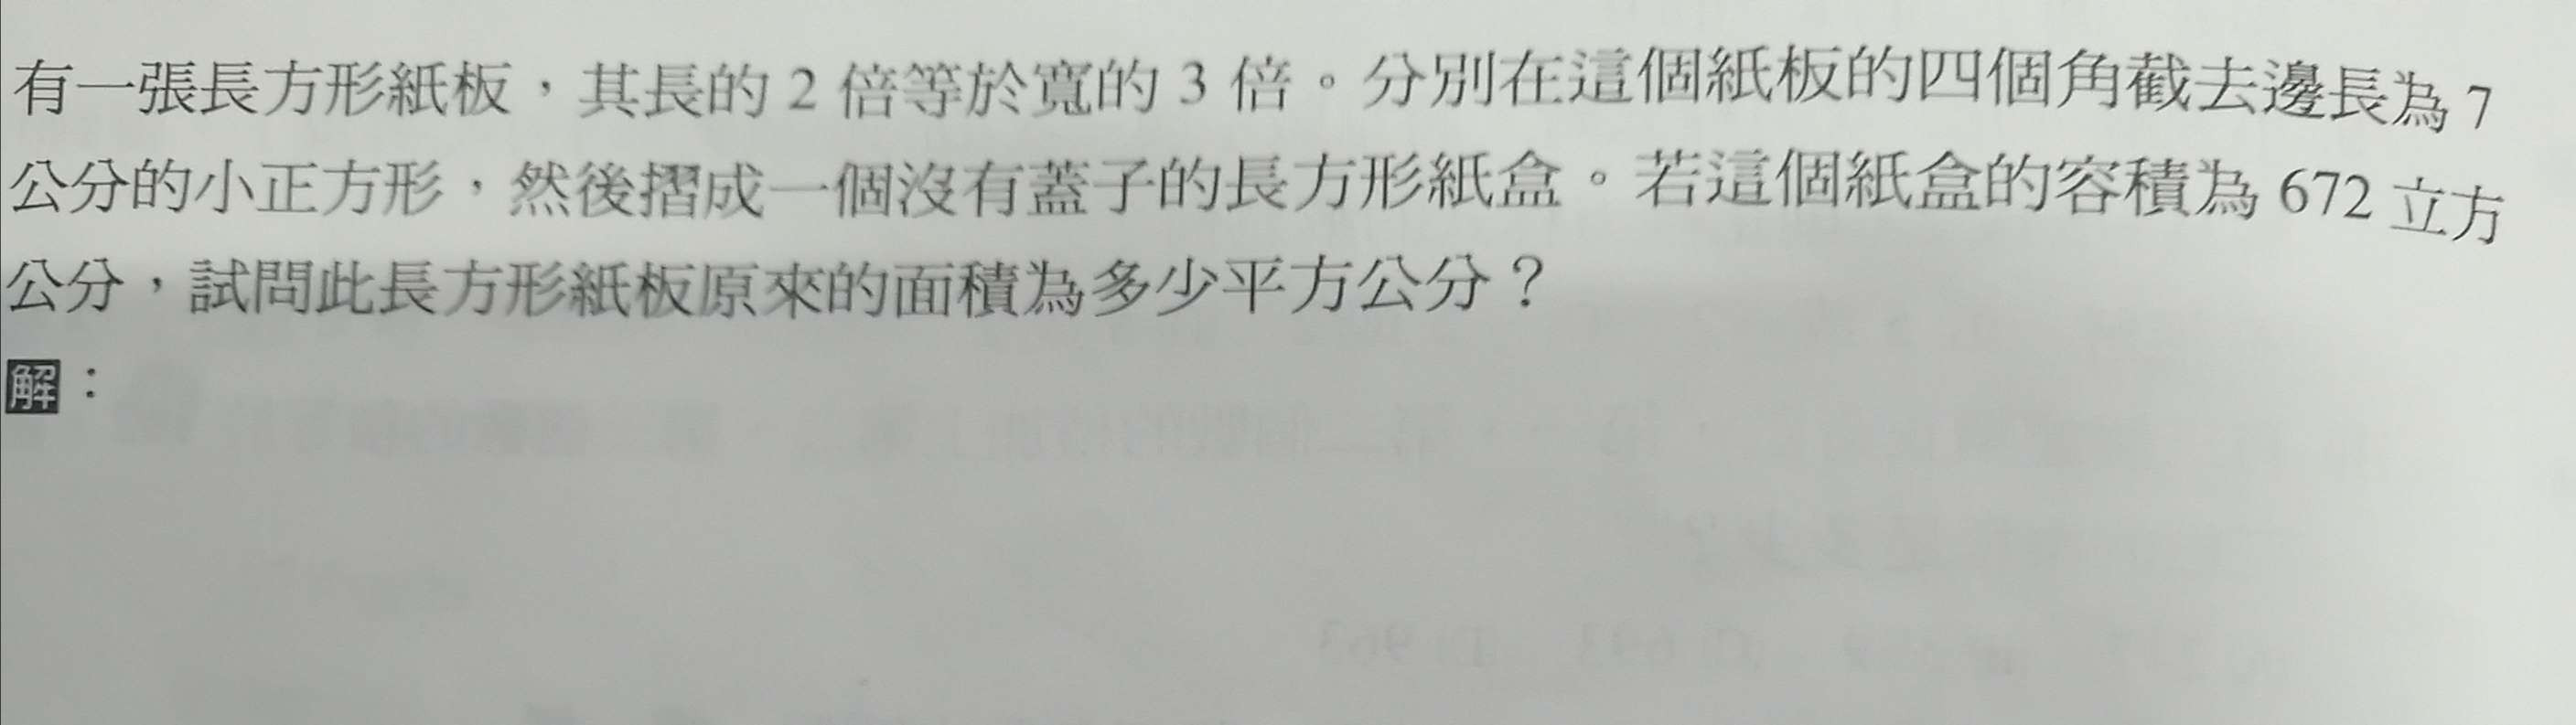 有一張長方形紙板，其長的 2 倍等於寬的 3 倍。分別在這個紙板的四個角截去邊長為 7
公分的小正方形，然後摺成一個沒有蓋子的長方形紙盒。若這個紙盒的容積為 672 立方
公分，試問此長方形紙板原來的面積為多少平方公分？
解：